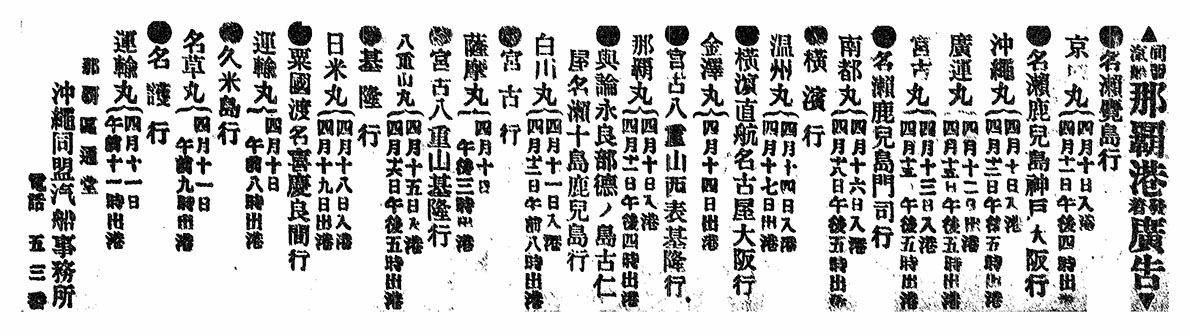 ▲同盟汽船那覇港發着廣告▼
●名瀨鹿兒島行
京丸 四月十日入港
四月十一日午後四時出港
●名瀨鹿兒島神戸大阪行
沖繩丸 四月十日入港
四月十三日午後五時出港
廣運丸 四月十二日出港
四月十五日午後五時出港
宮古丸 四月十三日入港
四月十五日午後五時出港
●名瀨鹿兒島門司行
南都丸 四月十六日入港
四月十八日午後五時出港
●横濱行
温州丸 四月十四日入港
四月十七日出港
●横濱直航名古屋大阪行
金澤丸 四月十四日出港
●宮古八重山西表基隆行
那覇丸 四月十日入港
四月十二日午後四時出港
●與論永良部德ノ島古仁
屋名瀨十島鹿兒島行
白川丸 四月十一日入港
四月十二日午前八時出港
●宮古行
薩摩丸 四月十日
午後三時出港
●宮古八重山基隆行
八重山丸 四月十五日入港
四月十六日午後五時出港
●基隆行
日米丸 四月十八日入港
四月十九日出港
●粟國渡名喜慶良間行
運輸丸 四月十日
午前八時出港
●久米島行
名草丸 四月十一日
午前九時出港
●名護行
運輸丸 四月十一日
午前十一時出港
那覇區通堂
沖繩同盟汽船事務所
電話 五三番